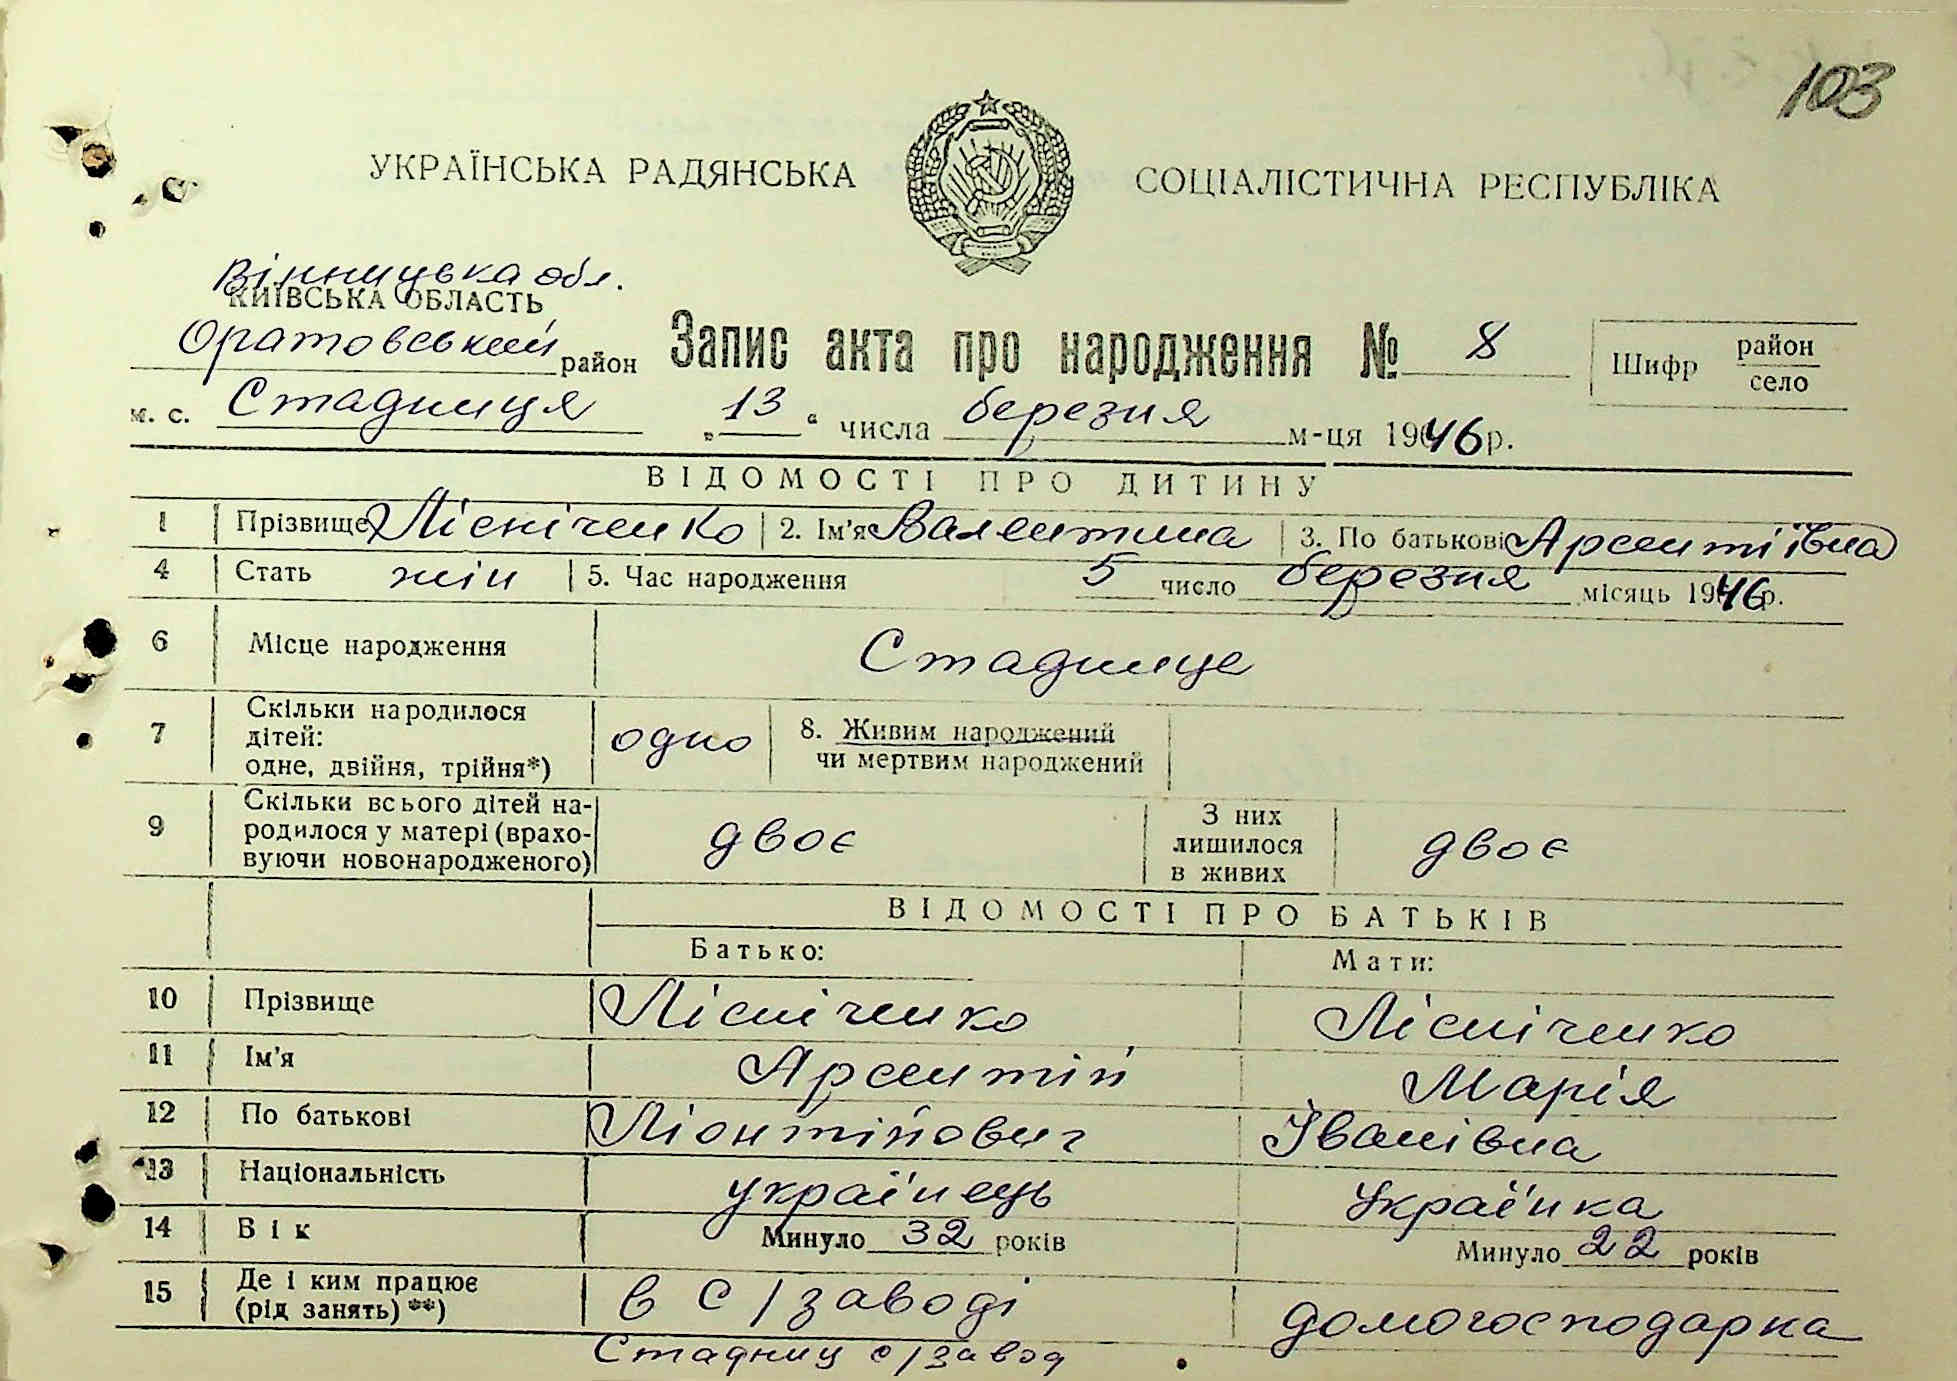 103
УКРАЇНСЬКА РАДЯНСЬКА СОЦІАЛІСТИЧНА РЕСПУБЛІКА
Вінницька обл.
КИЇВСЬКА ОБЛАСТЬ
Оратовський район Запис акта про народження № 8 Шифр район село
м. с. Стадниця „13“ числа березня м-ця 1946 р.
ВІДОМОСТІ ПРО ДИТИНУ
1 Прізвище Лісніченко 2. Ім'я Валентина 3. По батькові Арсентіївна
4 Стать жін 5. Час народження 5 число березня місяць 1946 р.
6 Місце народження Стадниця
7 Скільки народилося дітей: одне, двійня, трійня*) одно 8. Живим народжений чи мертвим народжений
9 Скільки всього дітей народилося у матері (враховуючи новонародженого) двоє З них лишилося в живих двоє
ВІДОМОСТІ ПРО БАТЬКІВ
Батько: Мати:
10 Прізвище Лісніченко Лісніченко
11 Ім'я Арсентій Марія
12 По батькові Ліонтійович Іванівна
13 Національність українець українка
14 Вік Минуло 32 років Минуло 22 років
15 Де і ким працює (рід занять) **) в с/заводі домогосподарка
Стадниц с/завод